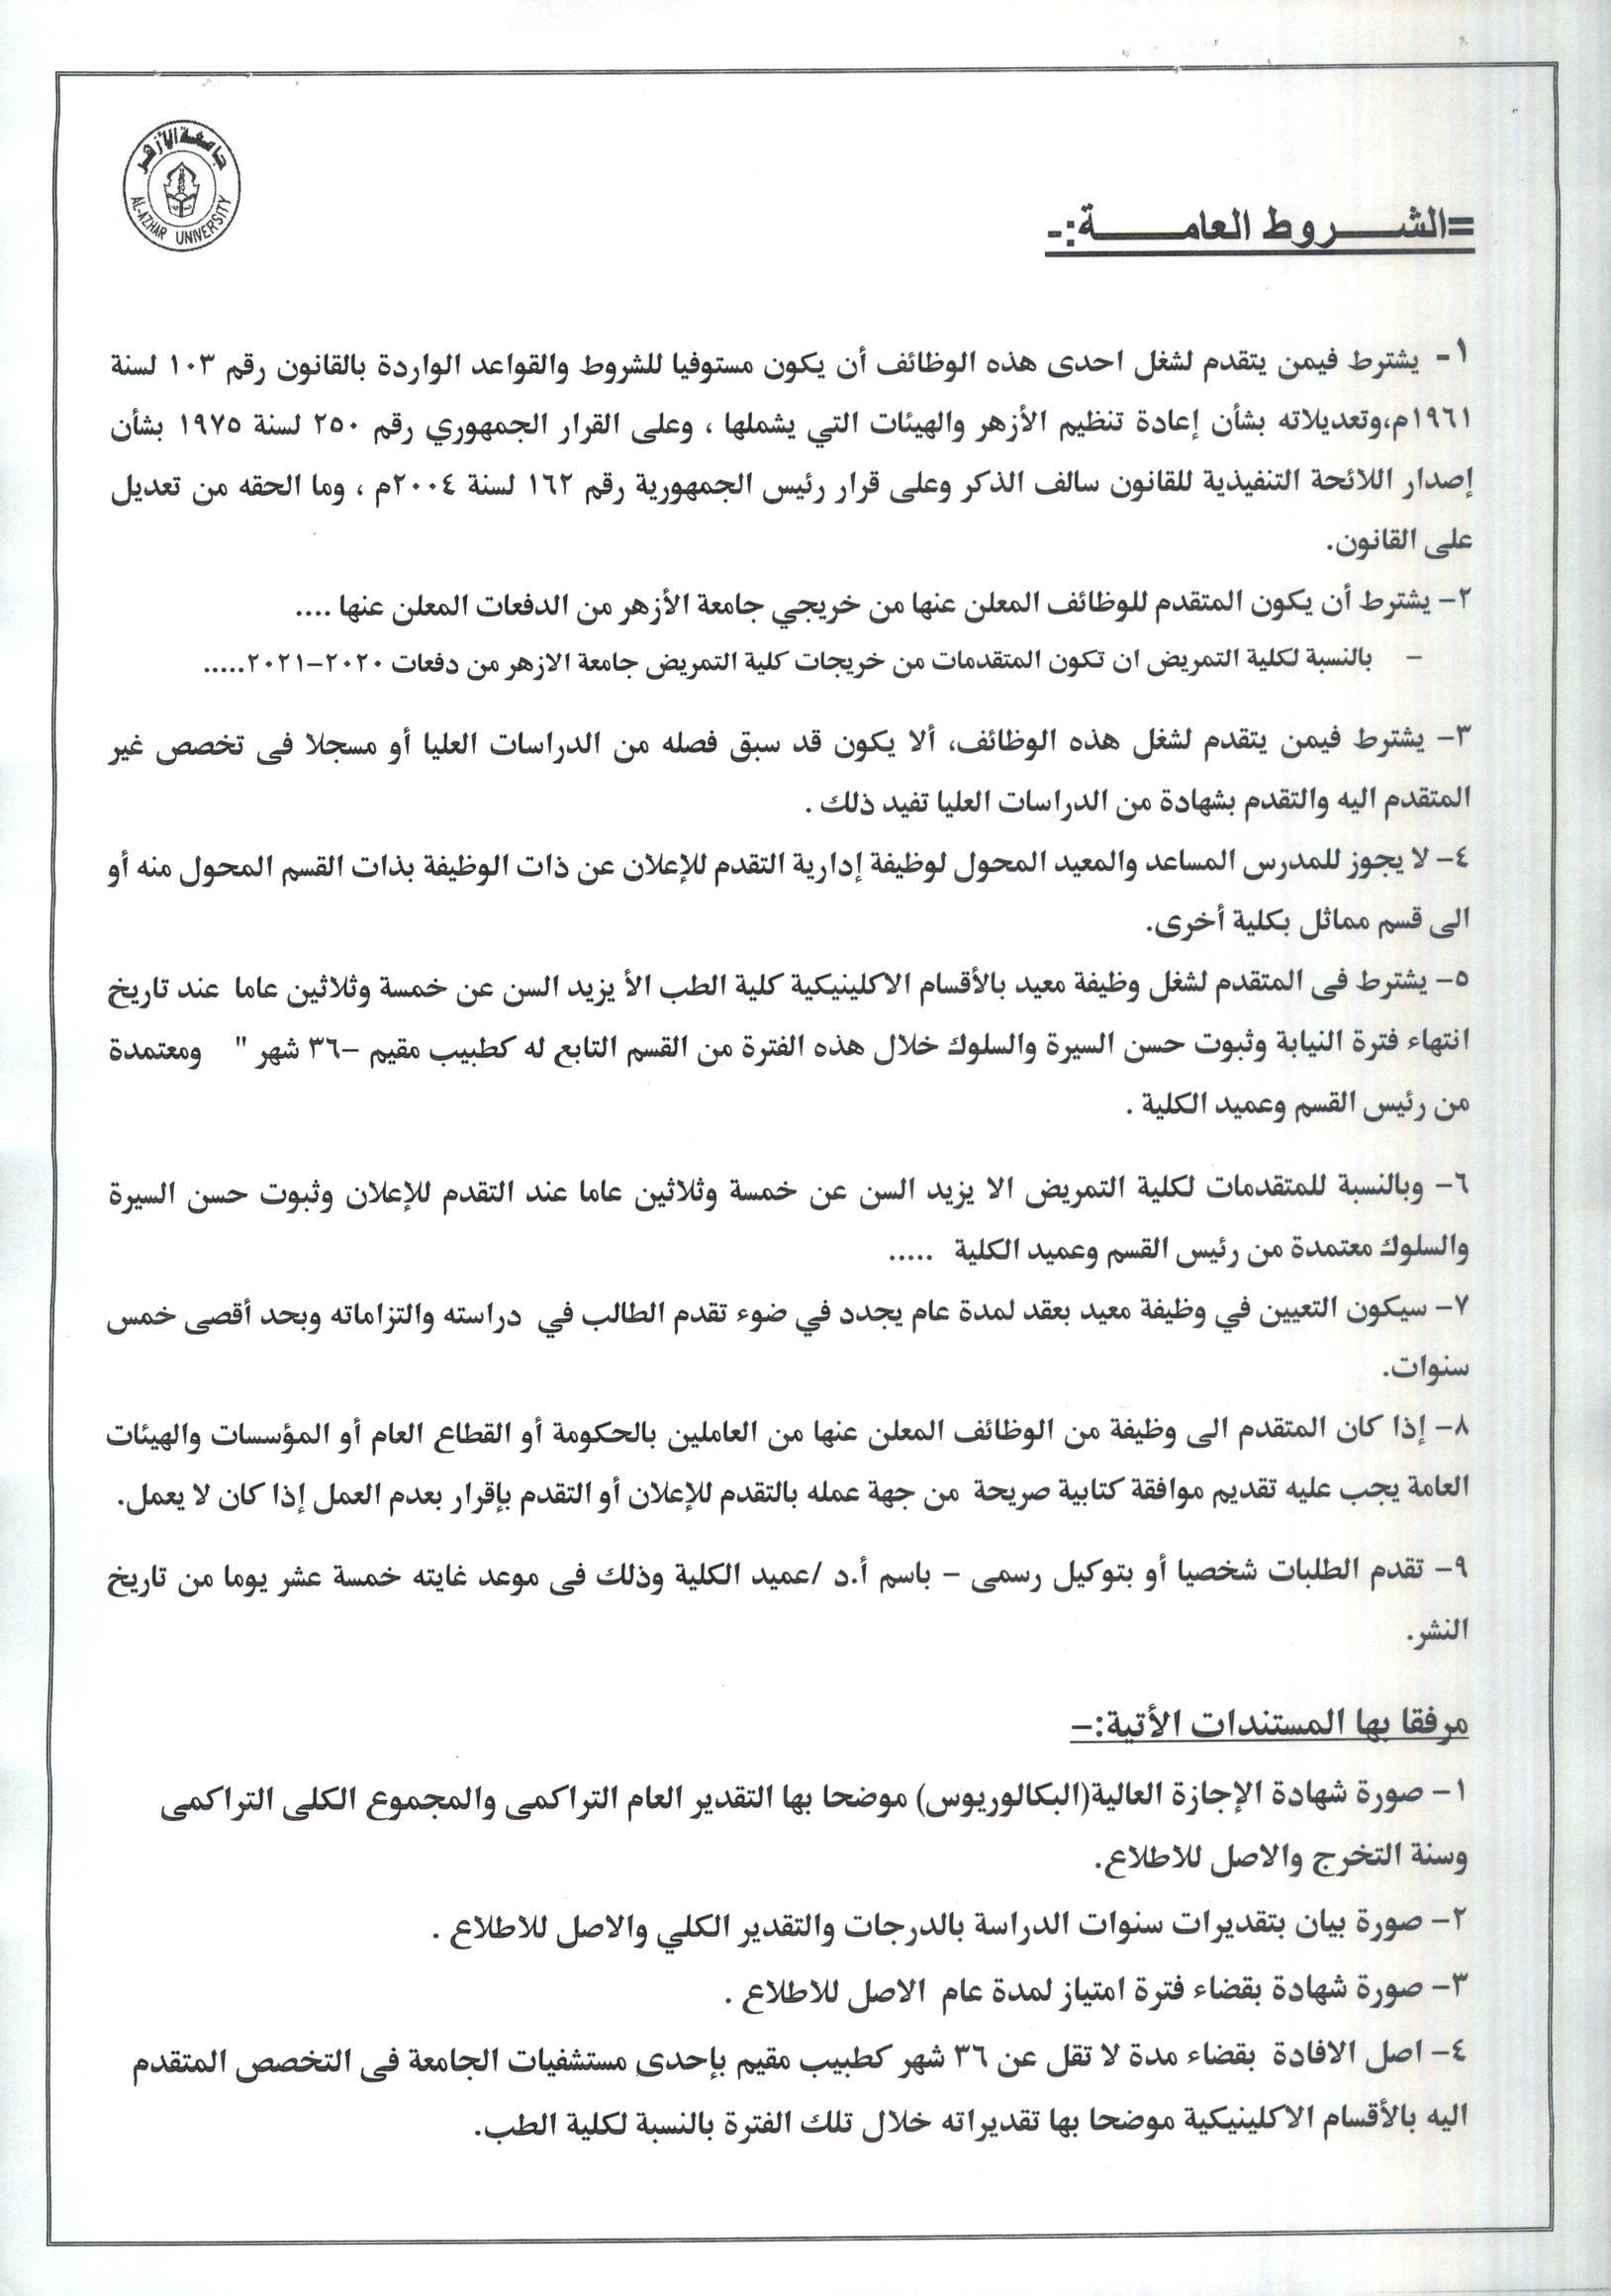 جامعة الأزهر
AL-AZHAR UNIVERSITY
=الشـــروط العامـــــة:-
١- يشترط فيمن يتقدم لشغل احدى هذه الوظائف أن يكون مستوفيا للشروط والقواعد الواردة بالقانون رقم ١٠٣ لسنة
١٩٦١م،وتعديلاته بشأن إعادة تنظيم الأزهر والهيئات التي يشملها ، وعلى القرار الجمهوري رقم ٢٥٠ لسنة ١٩٧٥ بشأن
إصدار اللائحة التنفيذية للقانون سالف الذكر وعلى قرار رئيس الجمهورية رقم ١٦٢ لسنة ٢٠٠٤م ، وما الحقه من تعديل
على القانون.
٢- يشترط أن يكون المتقدم للوظائف المعلن عنها من خريجي جامعة الأزهر من الدفعات المعلن عنها ....
- بالنسبة لكلية التمريض ان تكون المتقدمات من خريجات كلية التمريض جامعة الازهر من دفعات ٢٠٢٠-٢٠٢١.....
٣- يشترط فيمن يتقدم لشغل هذه الوظائف، ألا يكون قد سبق فصله من الدراسات العليا أو مسجلا فى تخصص غير
المتقدم اليه والتقدم بشهادة من الدراسات العليا تفيد ذلك .
٤- لا يجوز للمدرس المساعد والمعيد المحول لوظيفة إدارية التقدم للإعلان عن ذات الوظيفة بذات القسم المحول منه أو
الى قسم مماثل بكلية أخرى.
٥- يشترط فى المتقدم لشغل وظيفة معيد بالأقسام الاكلينيكية كلية الطب الأ يزيد السن عن خمسة وثلاثين عاما عند تاريخ
انتهاء فترة النيابة وثبوت حسن السيرة والسلوك خلال هذه الفترة من القسم التابع له كطبيب مقيم -٣٦ شهر " ومعتمدة
من رئيس القسم وعميد الكلية .
٦- وبالنسبة للمتقدمات لكلية التمريض الا يزيد السن عن خمسة وثلاثين عاما عند التقدم للإعلان وثبوت حسن السيرة
والسلوك معتمدة من رئيس القسم وعميد الكلية .....
٧- سيكون التعيين في وظيفة معيد بعقد لمدة عام يجدد في ضوء تقدم الطالب في دراسته والتزاماته وبحد أقصى خمس
سنوات.
٨- إذا كان المتقدم الى وظيفة من الوظائف المعلن عنها من العاملين بالحكومة أو القطاع العام أو المؤسسات والهيئات
العامة يجب عليه تقديم موافقة كتابية صريحة من جهة عمله بالتقدم للإعلان أو التقدم بإقرار بعدم العمل إذا كان لا يعمل.
٩- تقدم الطلبات شخصيا أو بتوكيل رسمى - باسم أ.د /عميد الكلية وذلك فى موعد غايته خمسة عشر يوما من تاريخ
النشر.
مرفقا بها المستندات الأتية:-
١- صورة شهادة الإجازة العالية(البكالوريوس) موضحا بها التقدير العام التراكمى والمجموع الكلى التراكمى
وسنة التخرج والاصل للاطلاع.
٢- صورة بيان بتقديرات سنوات الدراسة بالدرجات والتقدير الكلي والاصل للاطلاع .
٣- صورة شهادة بقضاء فترة امتياز لمدة عام الاصل للاطلاع .
٤- اصل الافادة بقضاء مدة لا تقل عن ٣٦ شهر كطبيب مقيم بإحدى مستشفيات الجامعة فى التخصص المتقدم
اليه بالأقسام الاكلينيكية موضحا بها تقديراته خلال تلك الفترة بالنسبة لكلية الطب.